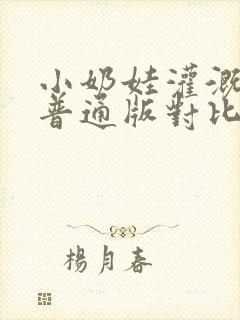 小奶娃灌溉
普通版對比
楊月春